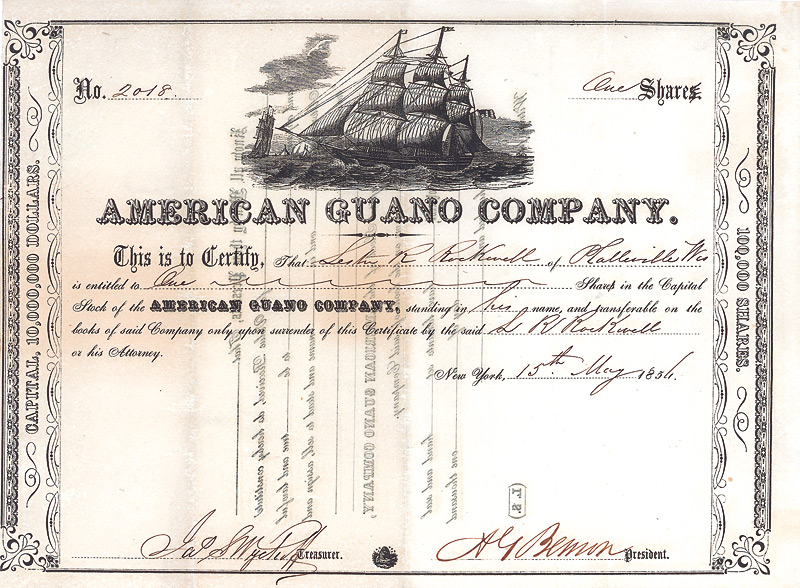 No. 2018. One Share
AMERICAN GUANO COMPANY.
This is to Certify, That Lester R Rockwell of Platteville Wis
is entitled to One Share in the Capital
Stock of the AMERICAN GUANO COMPANY, standing in his name, and transferable on the
books of said Company only upon surrender of this Certificate by the said L R Rockwell
or his Attorney.
New York, 15th May 1856.
Treasurer.
A G Benson President.
CAPITAL, 10,000,000 DOLLARS.
100,000 SHARES.